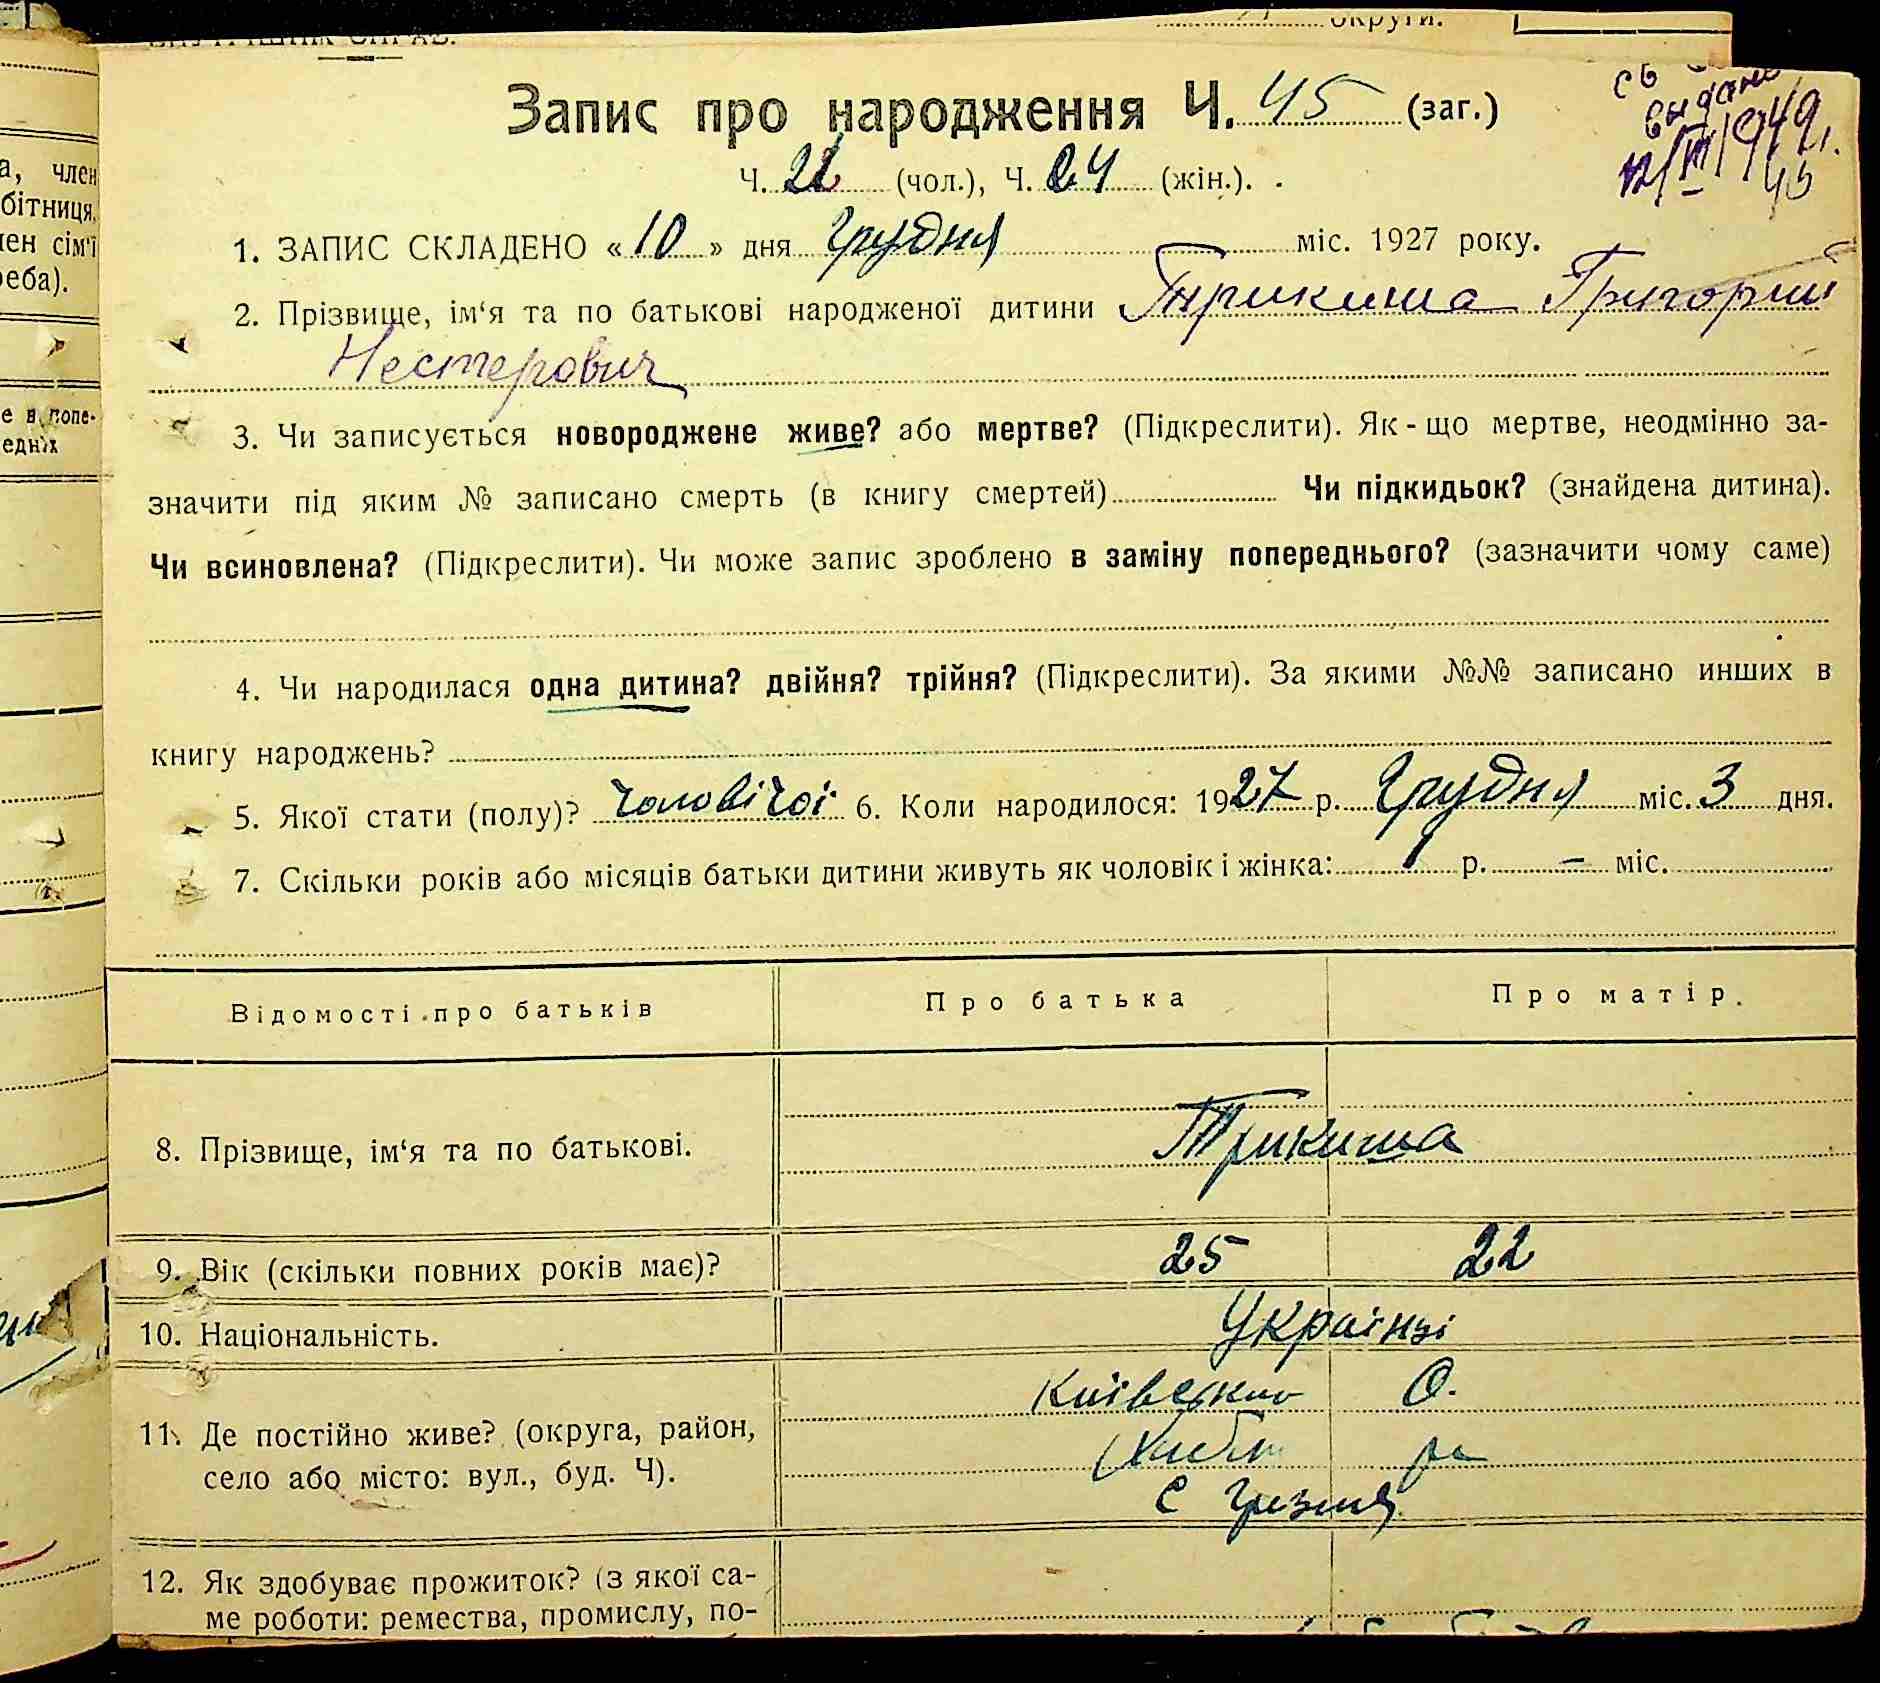 округи.
ВНУТРІШНІХ СПРАВ.
Запис про народження Ч. 45 (заг.)
видано
12/III 1949 г.
45
Ч. 21 (чол.), Ч. 24 (жін.).
1. ЗАПИС СКЛАДЕНО «10» дня Грудня міс. 1927 року.
2. Прізвище, ім'я та по батькові народженої дитини Трикиша Григорий
Нестерович
3. Чи записується новороджене живе? або мертве? (Підкреслити). Як-що мертве, неодмінно за-
значити під яким № записано смерть (в книгу смертей) Чи підкидьок? (знайдена дитина).
Чи всиновлена? (Підкреслити). Чи може запис зроблено в заміну попереднього? (зазначити чому саме)
4. Чи народилася одна дитина? двійня? трійня? (Підкреслити). За якими №№ записано инших в
книгу народжень?
5. Якої стати (полу)? Чоловічої 6. Коли народилося: 1927 р. Грудня міс. 3 дня.
7. Скільки років або місяців батьки дитини живуть як чоловік і жінка: 1 р. — міс.
Відомості про батьків Про батька Про матір.
8. Прізвище, ім'я та по батькові. Трикиша
9. Вік (скільки повних років має)? 25 22
10. Національність. Українці
11. Де постійно живе? (округа, район, О.
село або місто: вул., буд. Ч). с
12. Як здобуває прожиток? (з якої са-
ме роботи: ремества, промислу, по-
а, член
бітниця,
лен сім'ї
реба).
е в попе-
едніх